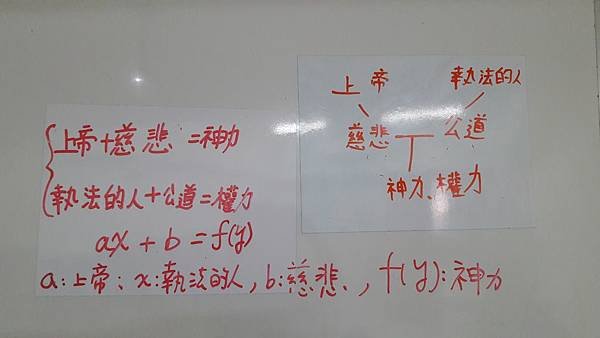 上帝+慈悲=神力
執法的人+公道=權力
ax+b=f(y)
a:上帝、x:執法的人,b:慈悲、,f(y):神力
上帝 執法的人
慈悲 公道
神力、權力